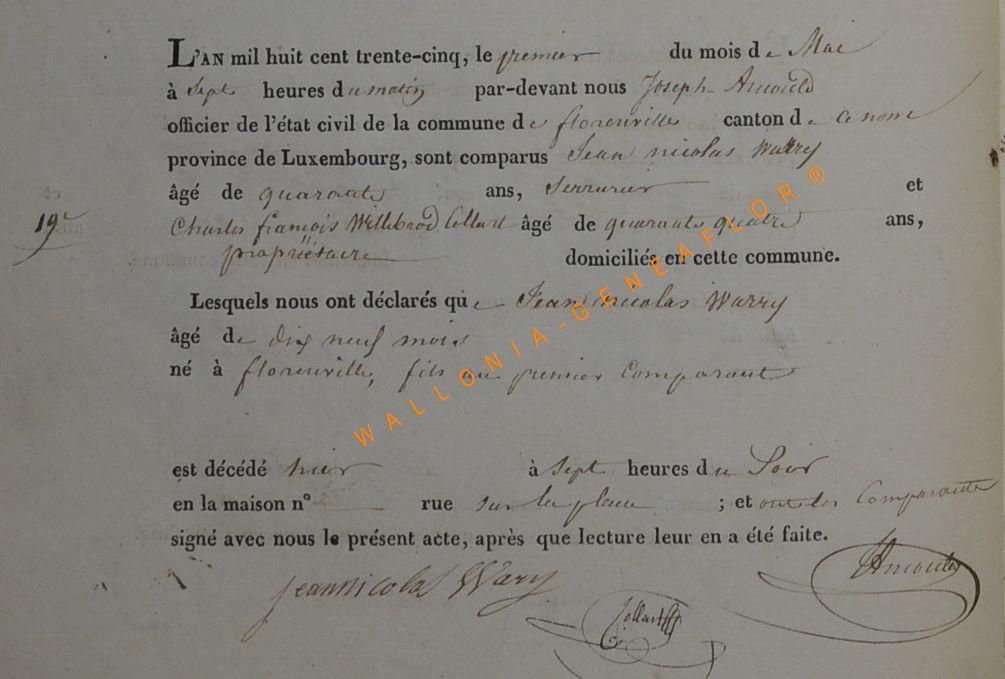 L'AN mil huit cent trente-cinq, le premier du mois de Mai
à Sept heures du matin par-devant nous Joseph Arnould
officier de l'état civil de la commune de florenville canton de ce nom
province de Luxembourg, sont comparus Jean nicolas Warry
âgé de quarante ans, Serrurier et
19e
Charles françois Willebrod Collart âgé de quarante quatre ans,
propriétaire domiciliés en cette commune.
Lesquels nous ont déclarés que Jean nicolas Warry
âgé de dix neuf mois
né à florenville, fils du premier Comparant
est décédé hier à Sept heures du Soir
en la maison n° rue sur la place ; et ont les Comparants
signé avec nous le présent acte, après que lecture leur en a été faite.
Jean Nicolas Wary
Collart
Arnould
WALLONIA-GENEAFLOR®